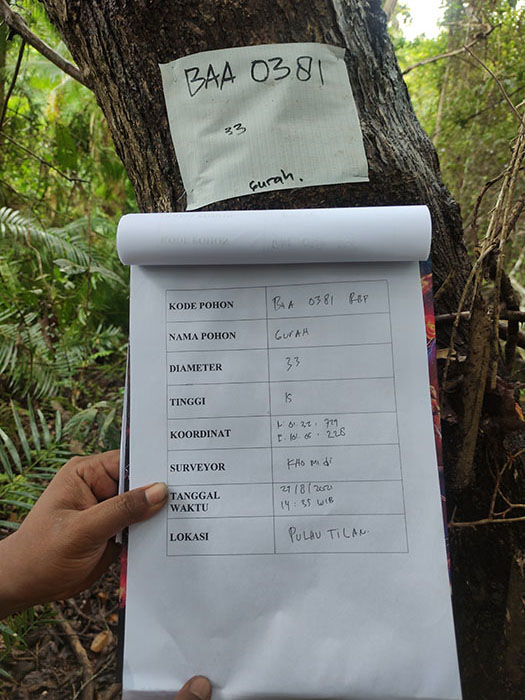 BAA 0381
33
Gurah.
KODE POHON BAA 0381 RBF
NAMA POHON GURAH
DIAMETER 33
TINGGI 15
KOORDINAT N: 01. 22. 729
E: 101. 05. 228
SURVEYOR KHOMIDI
TANGGAL 27/8/2021
WAKTU 14:35 WIB
LOKASI PULAU TILAN.